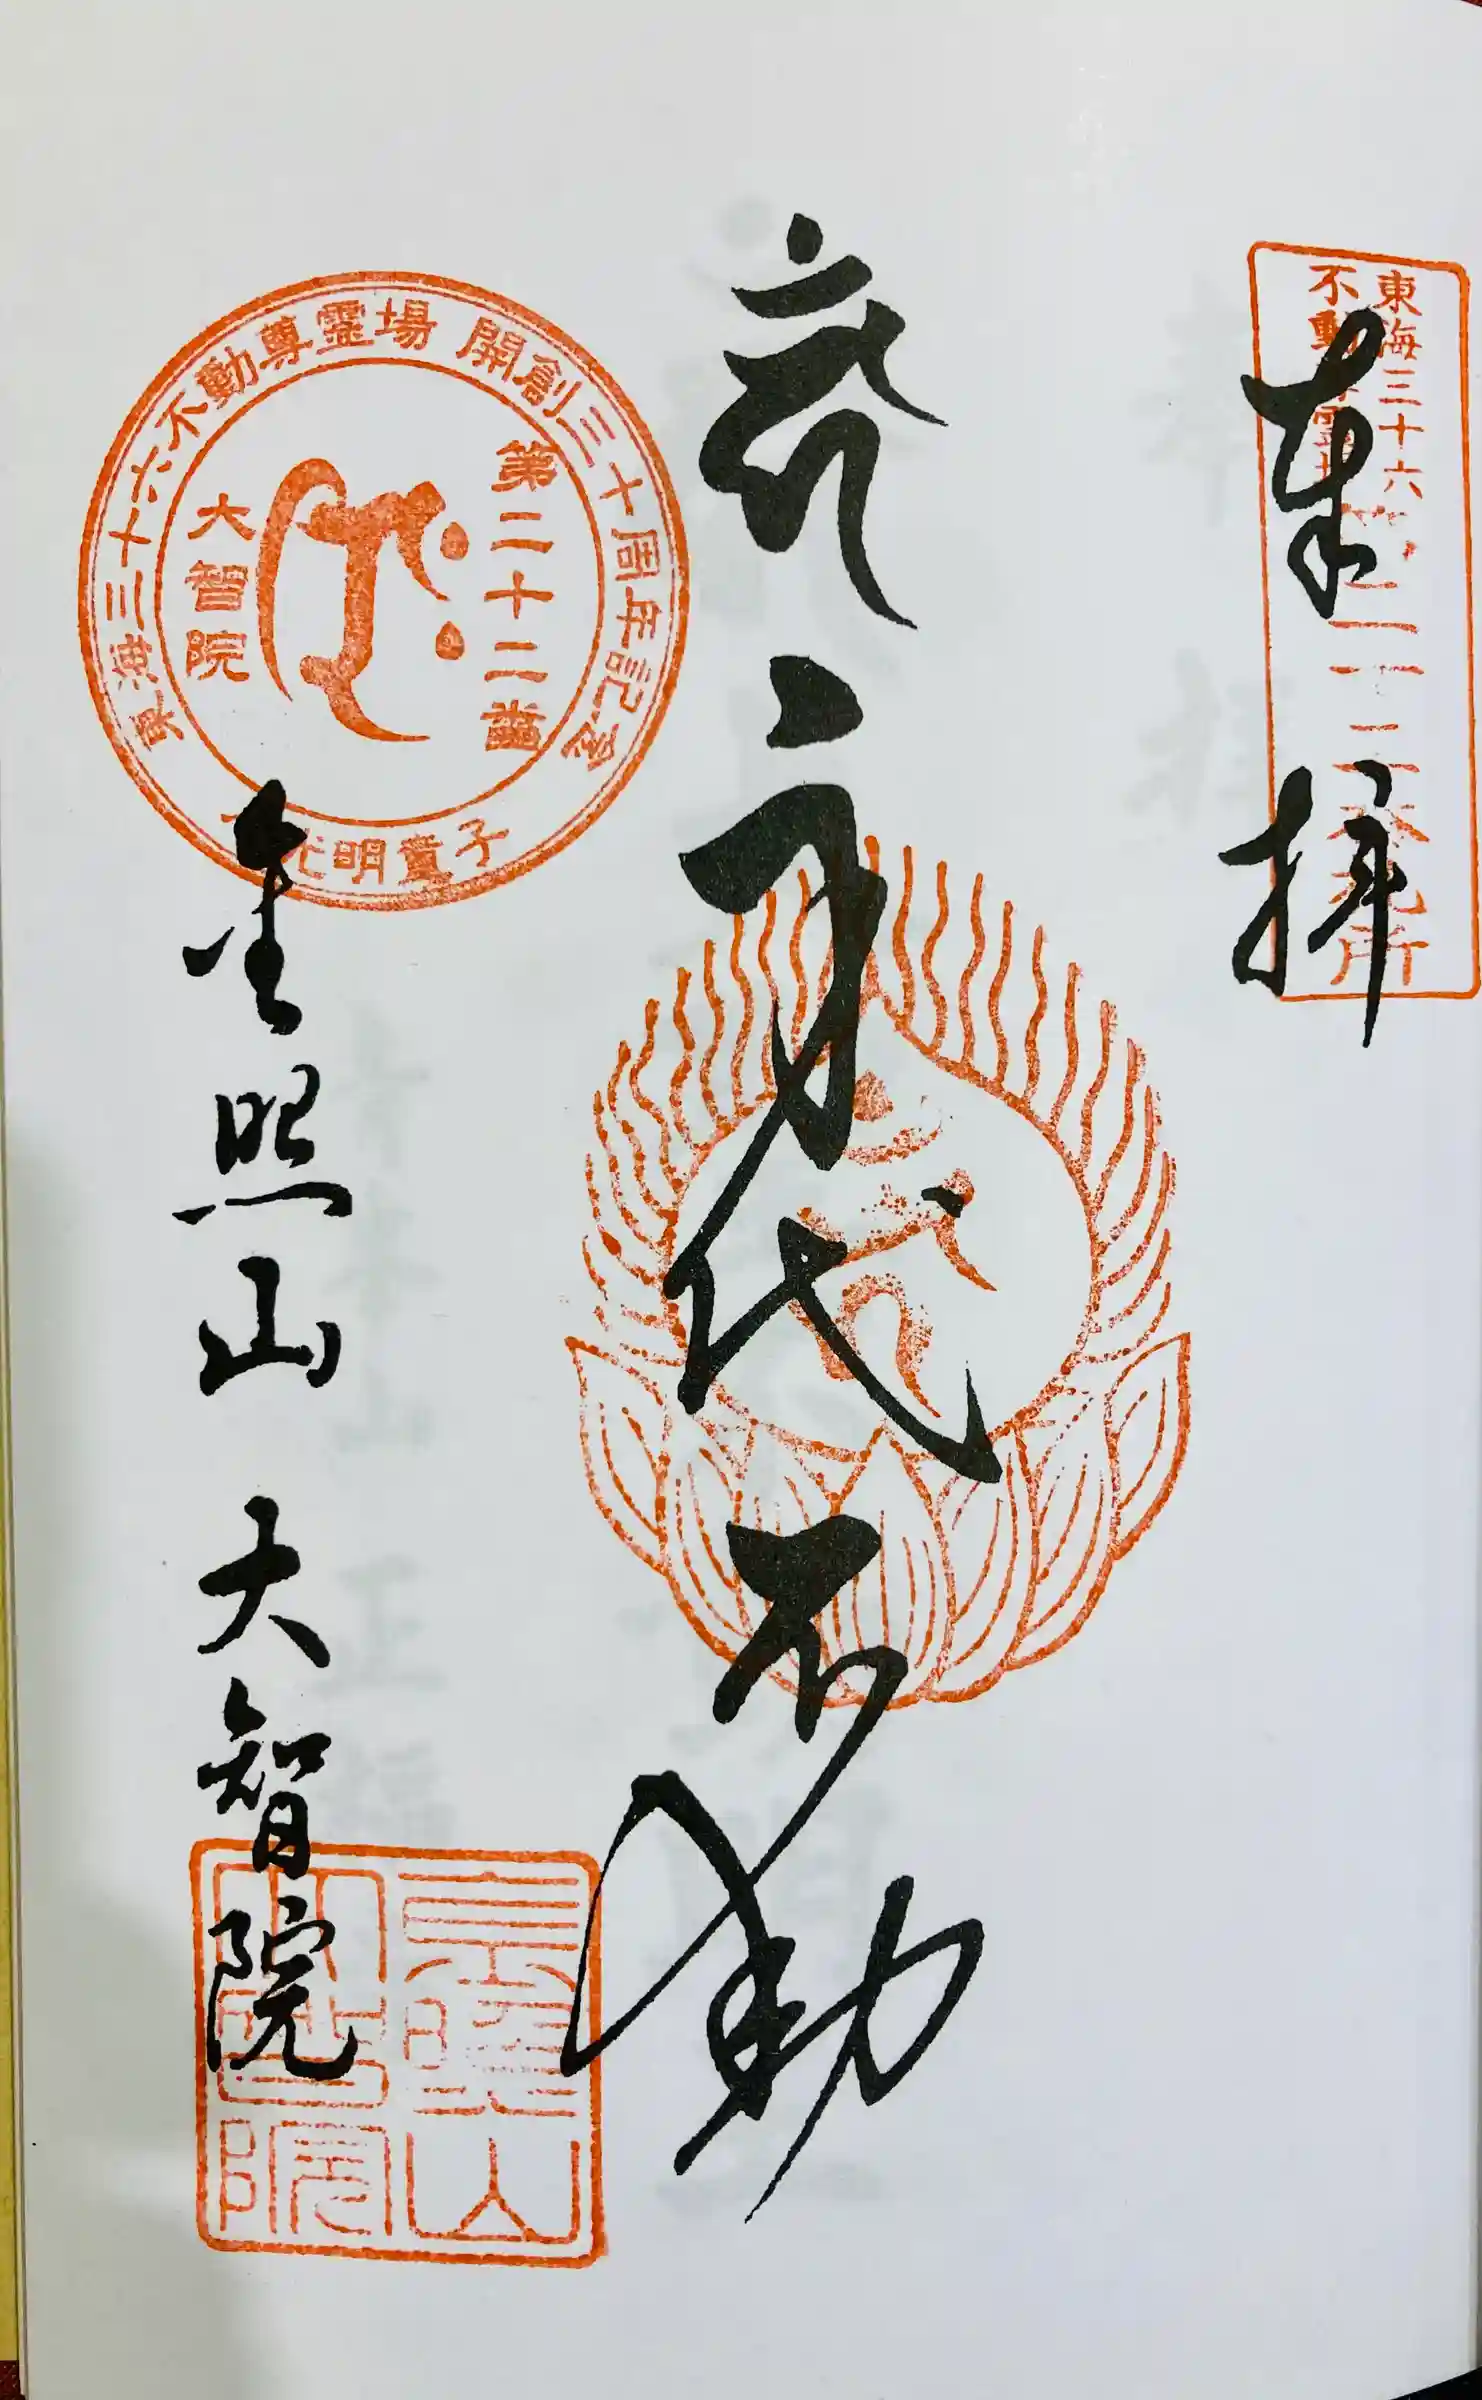 奉拝
東海三十六
不動尊霊場
第二十二番札所
身代不動
東海三十六不動尊霊場 開創三十周年記念
第二十二番
大智院
光明童子
金照山 大智院